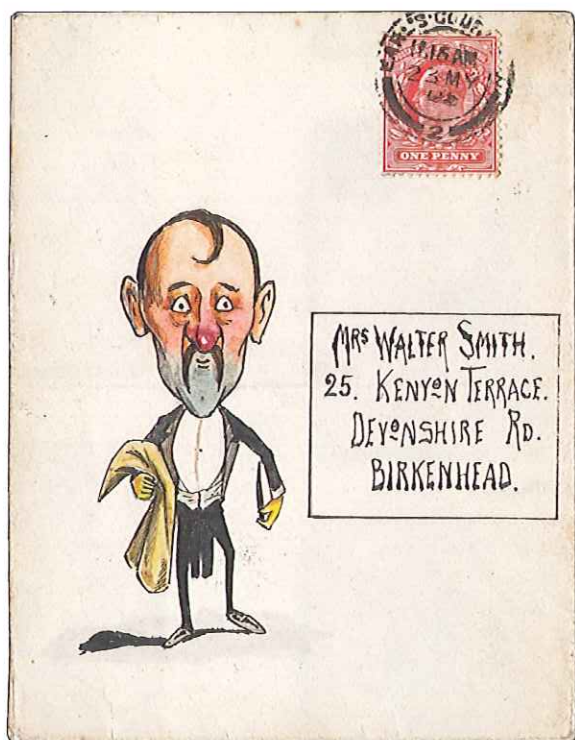 EARL'S·COURT
11.15 AM
ONE PENNY
MRS WALTER SMITH.
25. KENYON TERRACE.
DEVONSHIRE RD.
BIRKENHEAD.